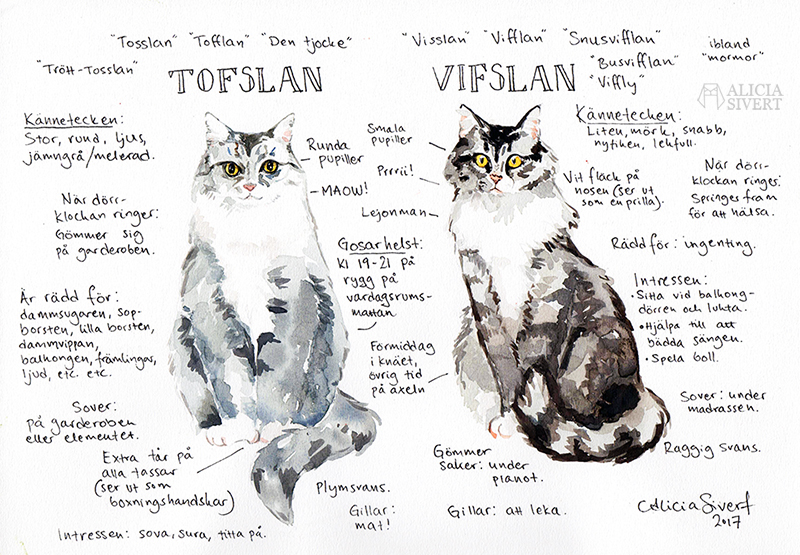 "Tosslan" "Tofflan" "Den tjocke"
"Trött-Tosslan"
TOFSLAN
Kännetecken:
Stor, rund, ljus,
jämngrå/melerad.
När dörr-
klockan ringer:
Gömmer sig
på garderoben.
Är rädd för:
dammsugaren, sop-
borsten, lilla borsten,
dammvippan,
balkongen, främlingar,
ljud, etc. etc.
Sover:
på garderoben
eller elementet.
Extra tår på
alla tassar
(ser ut som
boxningshandskar)
Intressen: sova, sura, titta på.
Runda
pupiller
MAOW!
Gosar helst:
Kl 19-21 på
rygg på
vardagsrums-
mattan
Plymsvans.
Gillar:
mat!
"Visslan" "Vifflan" "Snusvifflan"
"Busvifflan"
"Viffly"
ibland
"mormor"
VIFSLAN
ALICIA
SIVERT
Smala
pupiller
Prrrii!
Lejonman
Förmiddag
i knäet,
övrig tid
på axeln
Gömmer
saker: under
pianot.
Gillar: att leka.
Kännetecken:
Liten, mörk, snabb,
nyfiken, lekfull.
Vit fläck på
nosen (ser ut
som en prilla).
När dörr-
klockan ringer:
Springer fram
för att hälsa.
Rädd för: ingenting.
Intressen:
• Sitta vid balkong-
dörren och lukta.
• Hjälpa till att
bädda sängen.
• Spela boll.
Sover: under
madrassen.
Raggig svans.
Alicia Sivert
2017